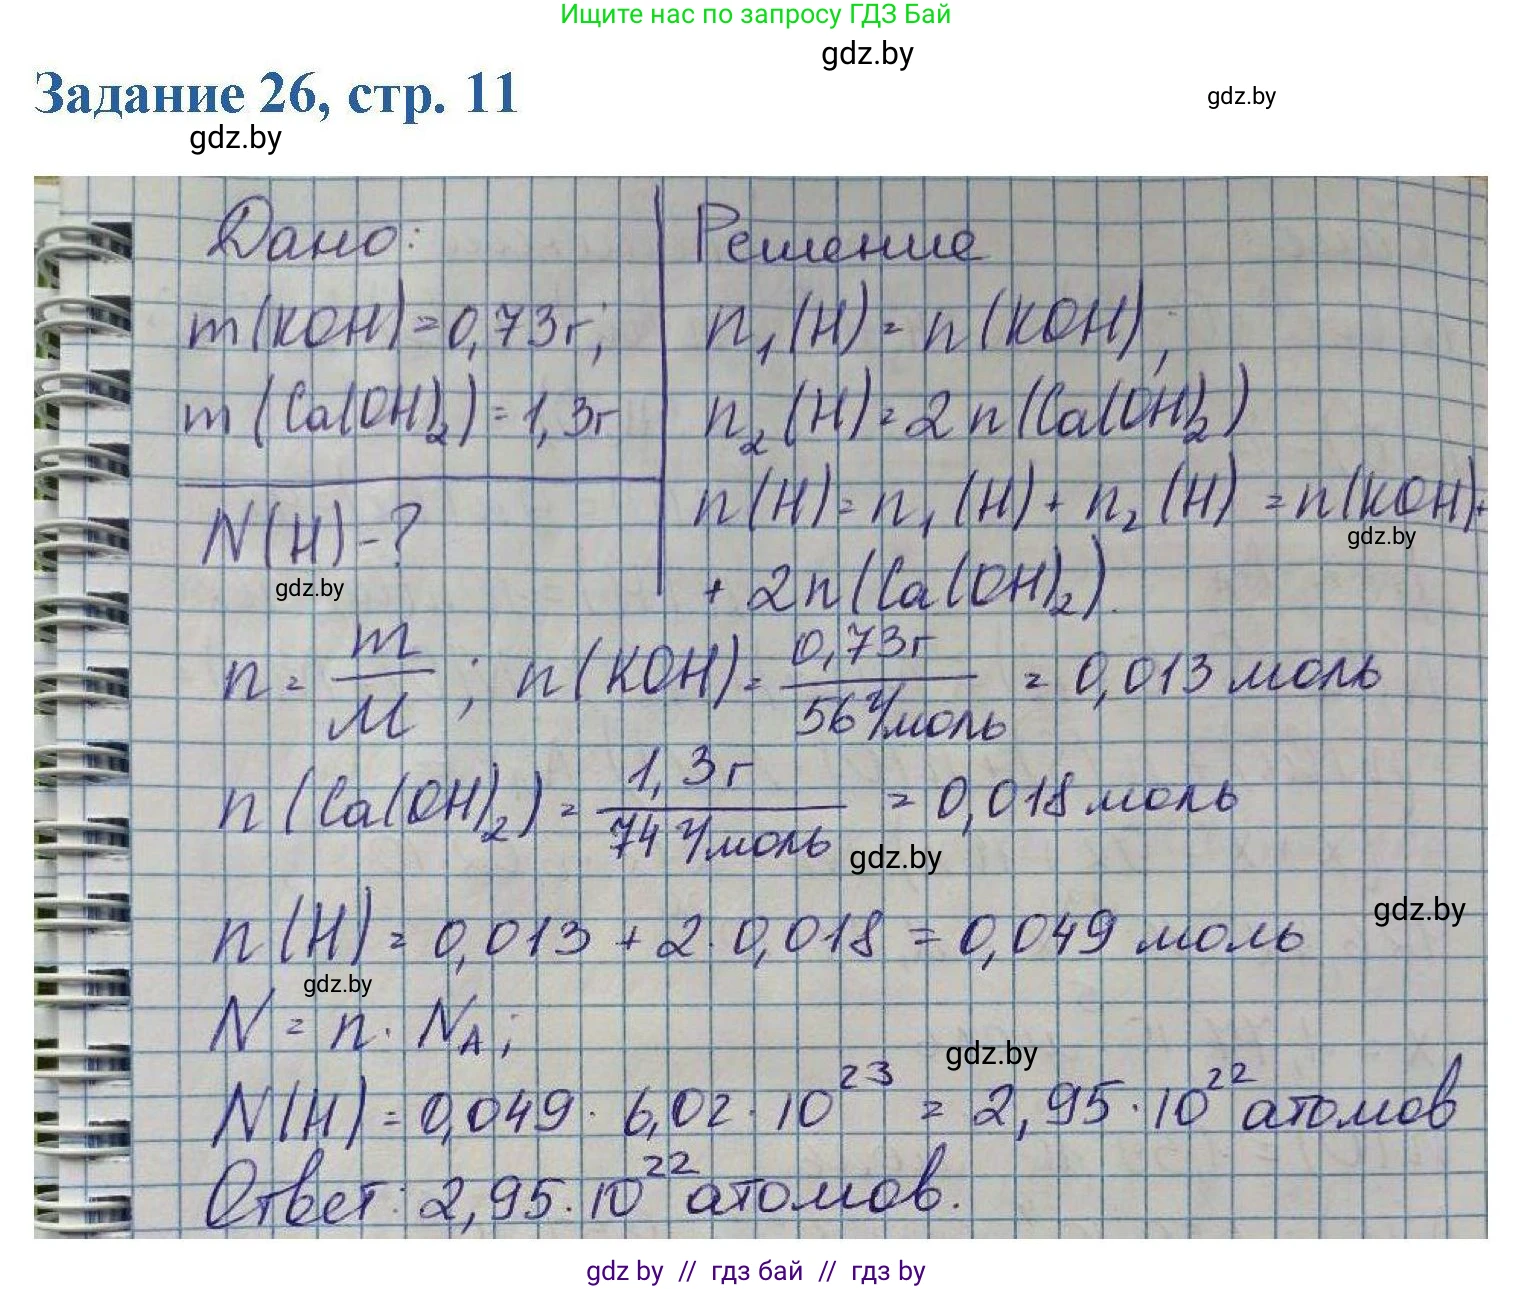 Ищите нас по запросу ГДЗ Бай
gdz.by
Задание 26, стр. 11
gdz.by
gdz.by
Дано:
m(KOH)=0,73г;
m(Ca(OH)₂)=1,3г
N(H)-?
gdz.by
Решение
n₁(H)=n(KOH);
n₂(H)=2n(Ca(OH)₂)
n(H)=n₁(H)+n₂(H)=n(KOH)+
gdz.by
+2n(Ca(OH)₂).
n=m/M; n(KOH)=0,73г/56г/моль=0,013моль
n(Ca(OH)₂)=1,3г/74г/моль=0,018моль
gdz.by
gdz.by
n(H)=0,013+2·0,018=0,049моль
gdz.by
N=n·N_A;
gdz.by
N(H)=0,049·6,02·10²³=2,95·10²²атомов
Ответ: 2,95·10²²атомов.
gdz by // гдз бай // гдз by